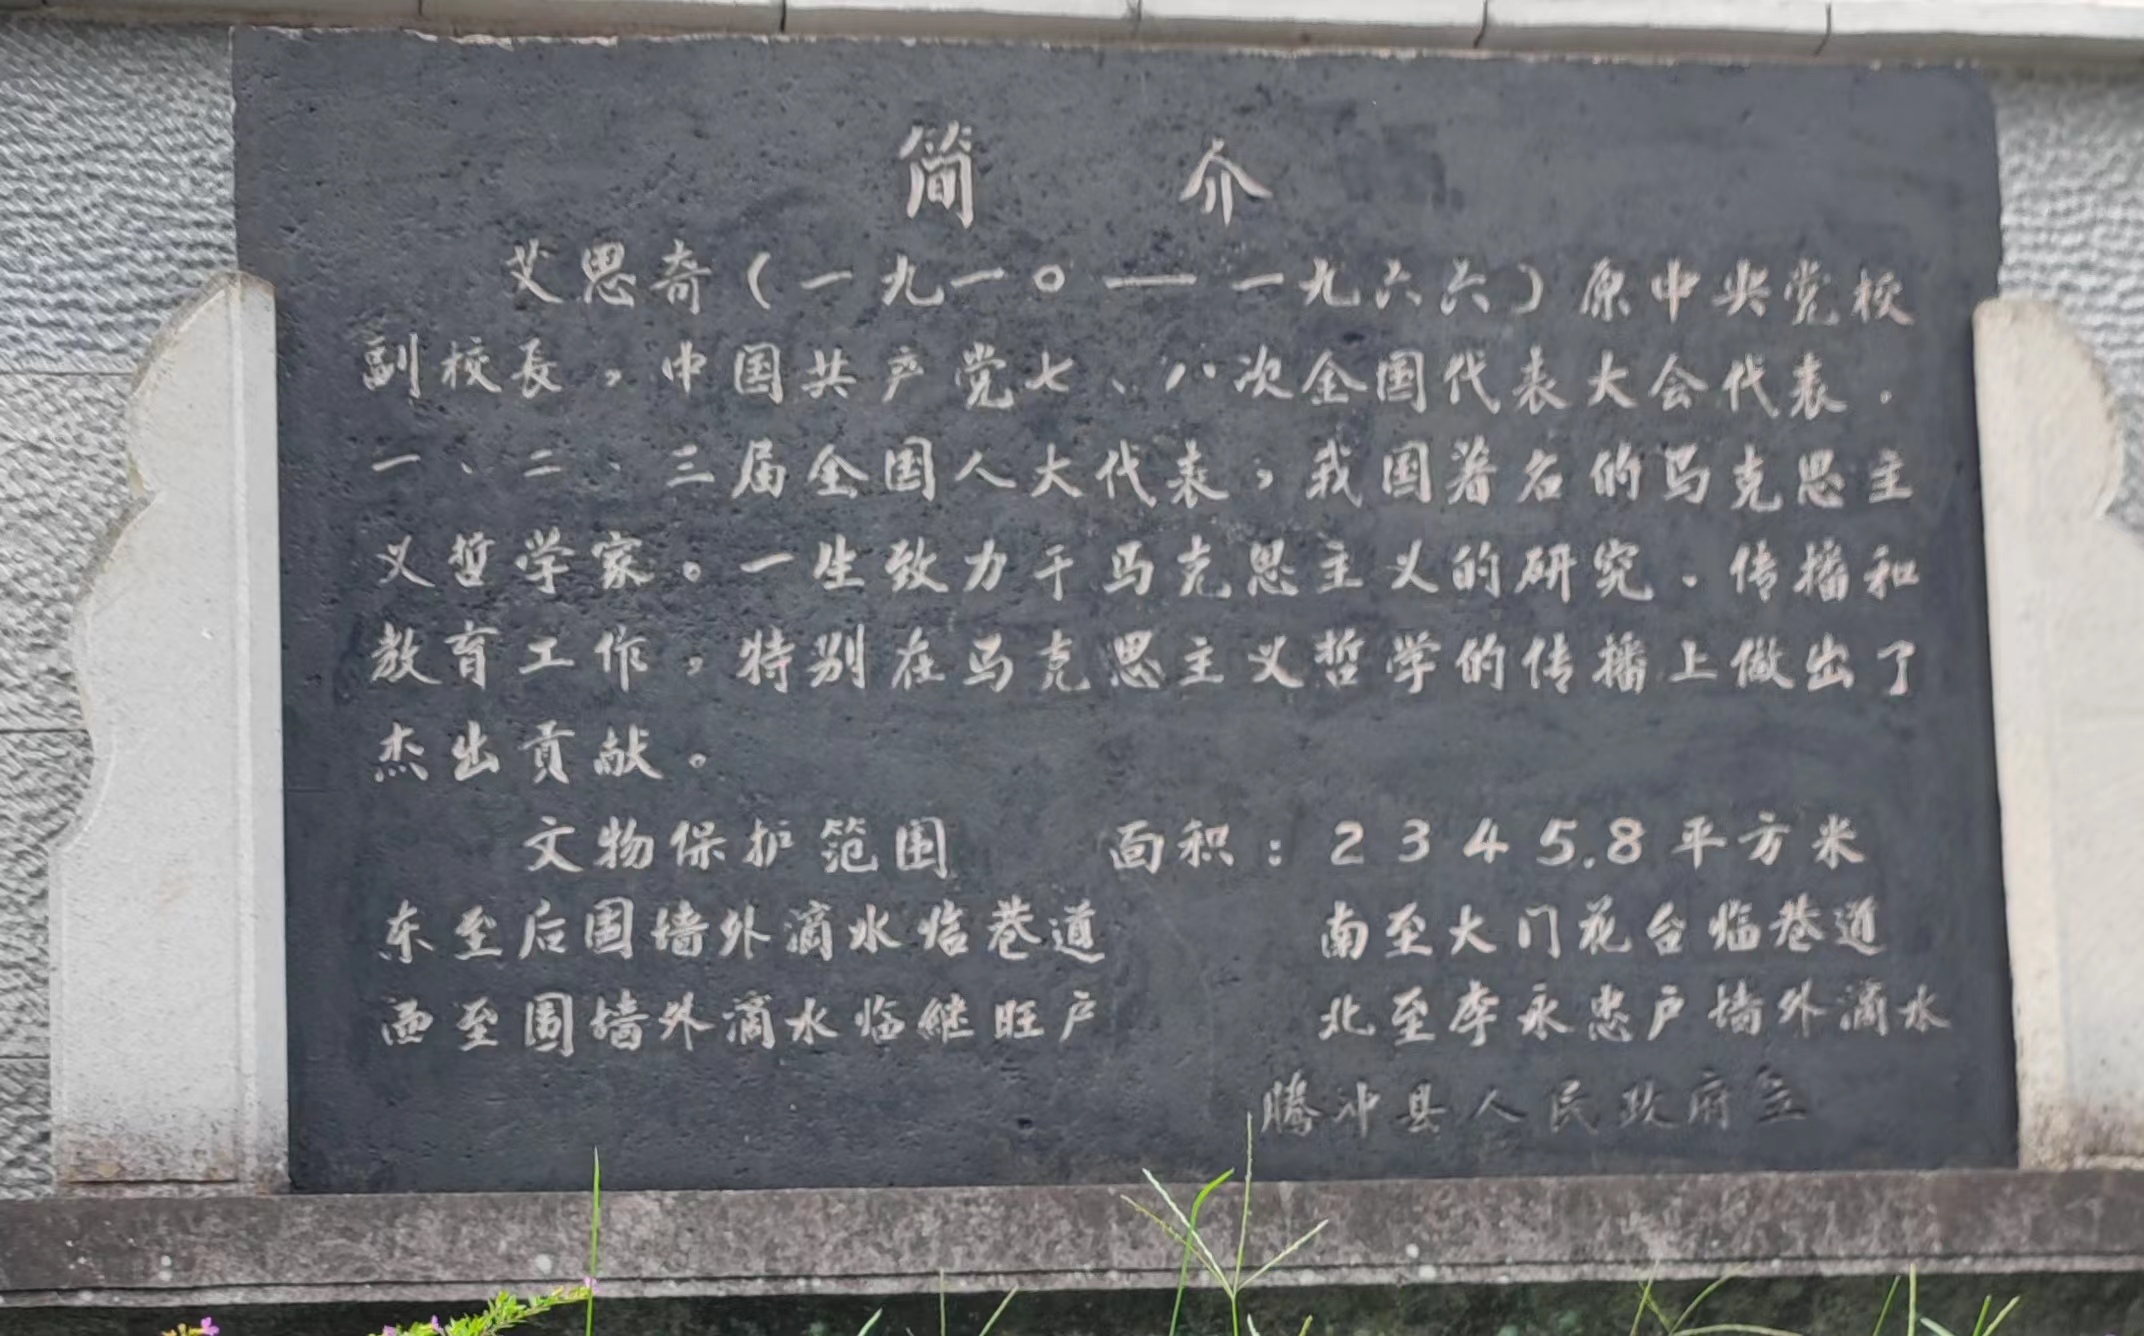 简 介
艾思奇（一九一〇——一九六六）原中央党校
副校長，中国共产党七、八次全国代表大会代表．
一、二、三届全国人大代表，我国著名的马克思主
义哲学家。一生致力于马克思主义的研究．传播和
教育工作，特别在马克思主义哲学的传播上做出了
杰出贡献。
文物保护范围 面积：2345.8平方米
东至后围墙外滴水临巷道 南至大门花台临巷道
西至围墙外滴水临继旺户 北至李永忠户墙外滴水
腾冲县人民政府立